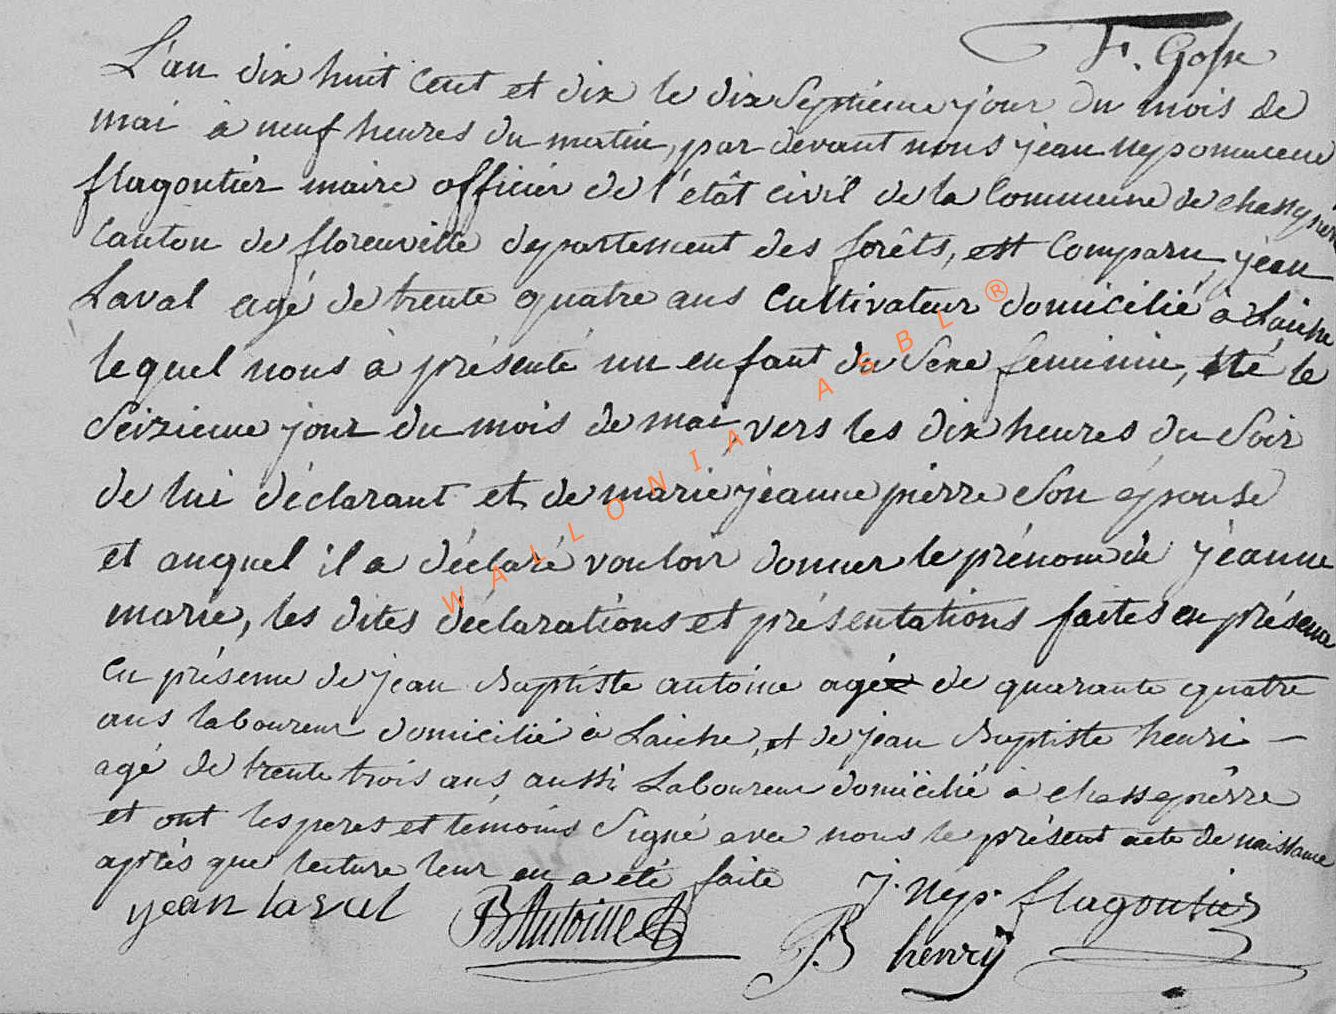 F. Gosse
L'an dix huit cent et dix le dix septieme jour du mois de
mai à neuf heures du matin, par devant nous jean nepomucene
flagontier maire officier de l'étât civil de la commune de chassepierre
canton de florenville departement des forêts, est comparu, jean
Laval agé de trente quatre ans cultivateur domicilié à Laiche
lequel nous à présenté un enfant du sexe feminin, né le
seizieme jour du mois de mai vers les dix heures du soir
de lui déclarant et de marie jeanne pierre son épouse
et auquel il a déclaré vouloir donner le prénom de jeanne
marie, les dites déclarations et présentations faites en présence
en présence de jean Baptiste antoine agé de quarante quatre
ans laboureur domicilié à Laiche, et de jean Baptiste henri —
agé de trente trois ans aussi Laboureur domicilié à chassepierre
et ont les peres et témoins signé avec nous le présent acte de naissance
aprés que lecture leur en a été faite
jean laval JB Antoine J. Nep. flagontier
JB henry
WALLONIA ASBL ®